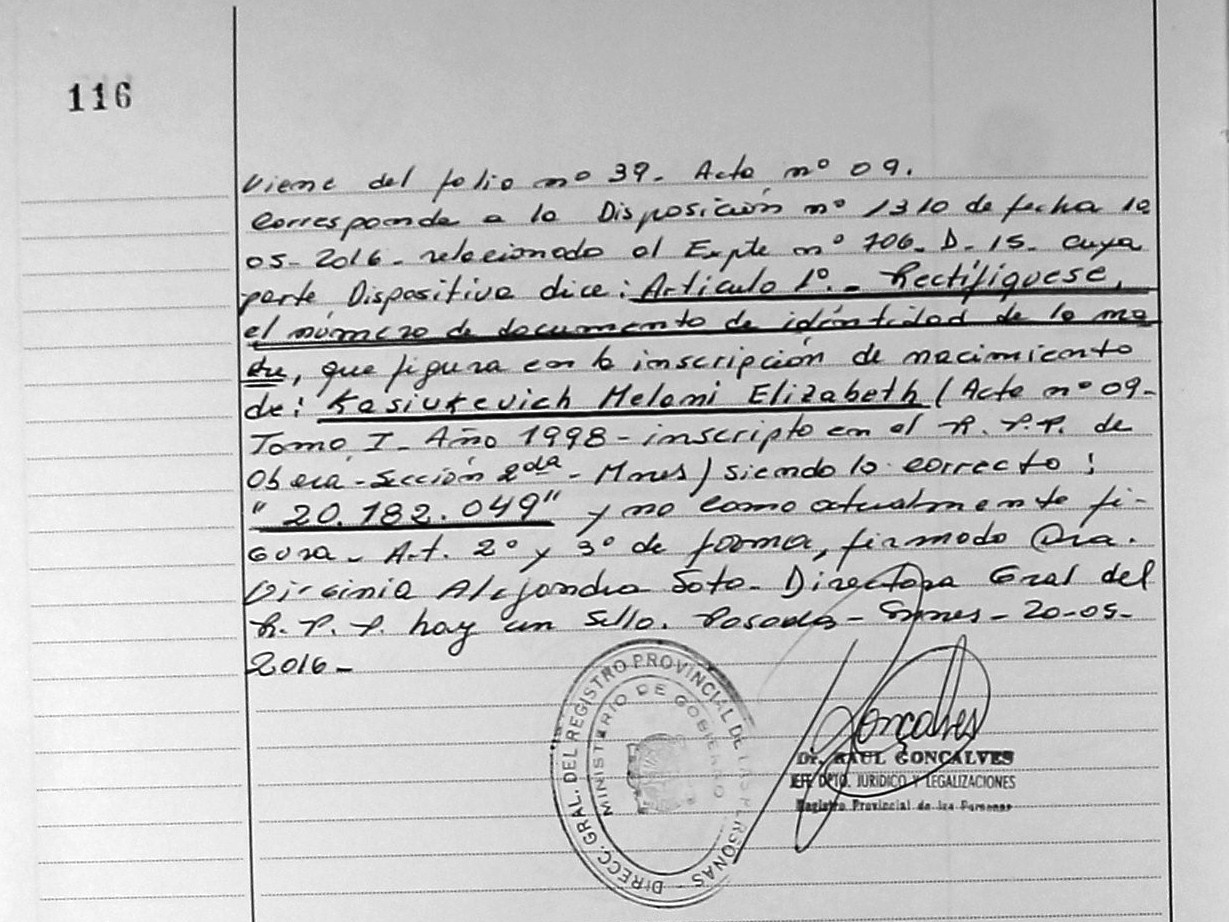 116
Viene del folio nº 39. Acta nº 09.
Corresponde a la Disposición nº 1310 de fecha 10
05-2016- relacionado al Expte nº 706-D-15- cuya
parte Dispositiva dice: Artículo 1º.- Rectifíquese,
el número de documento de idéntidad de la ma
dre, que figura en la inscripción de nacimiento
de: Kasiukevich Melani Elizabeth (Acta nº 09-
Tomo I- Año 1998- inscripto en el R.P.P. de
Oberá-Sección 2da- Mnes) siendo lo correcto:
"20.182.049" y no como actualmente fi-
gura- Art. 2º y 3º de forma, firmado Dra.
Virginia Alejandra Soto- Directora Gral del
R.P.P. hay un Sello. Posadas- Mnes- 20-05-
2016-
DIRECC. GRAL. DEL REGISTRO PROVINCIAL DE LAS PERSONAS
MINISTERIO DE GOBIERNO
Gonçalves
Dr. RAUL GONCALVES
JEFE DPTO. JURIDICO Y LEGALIZACIONES
Registro Provincial de las Personas